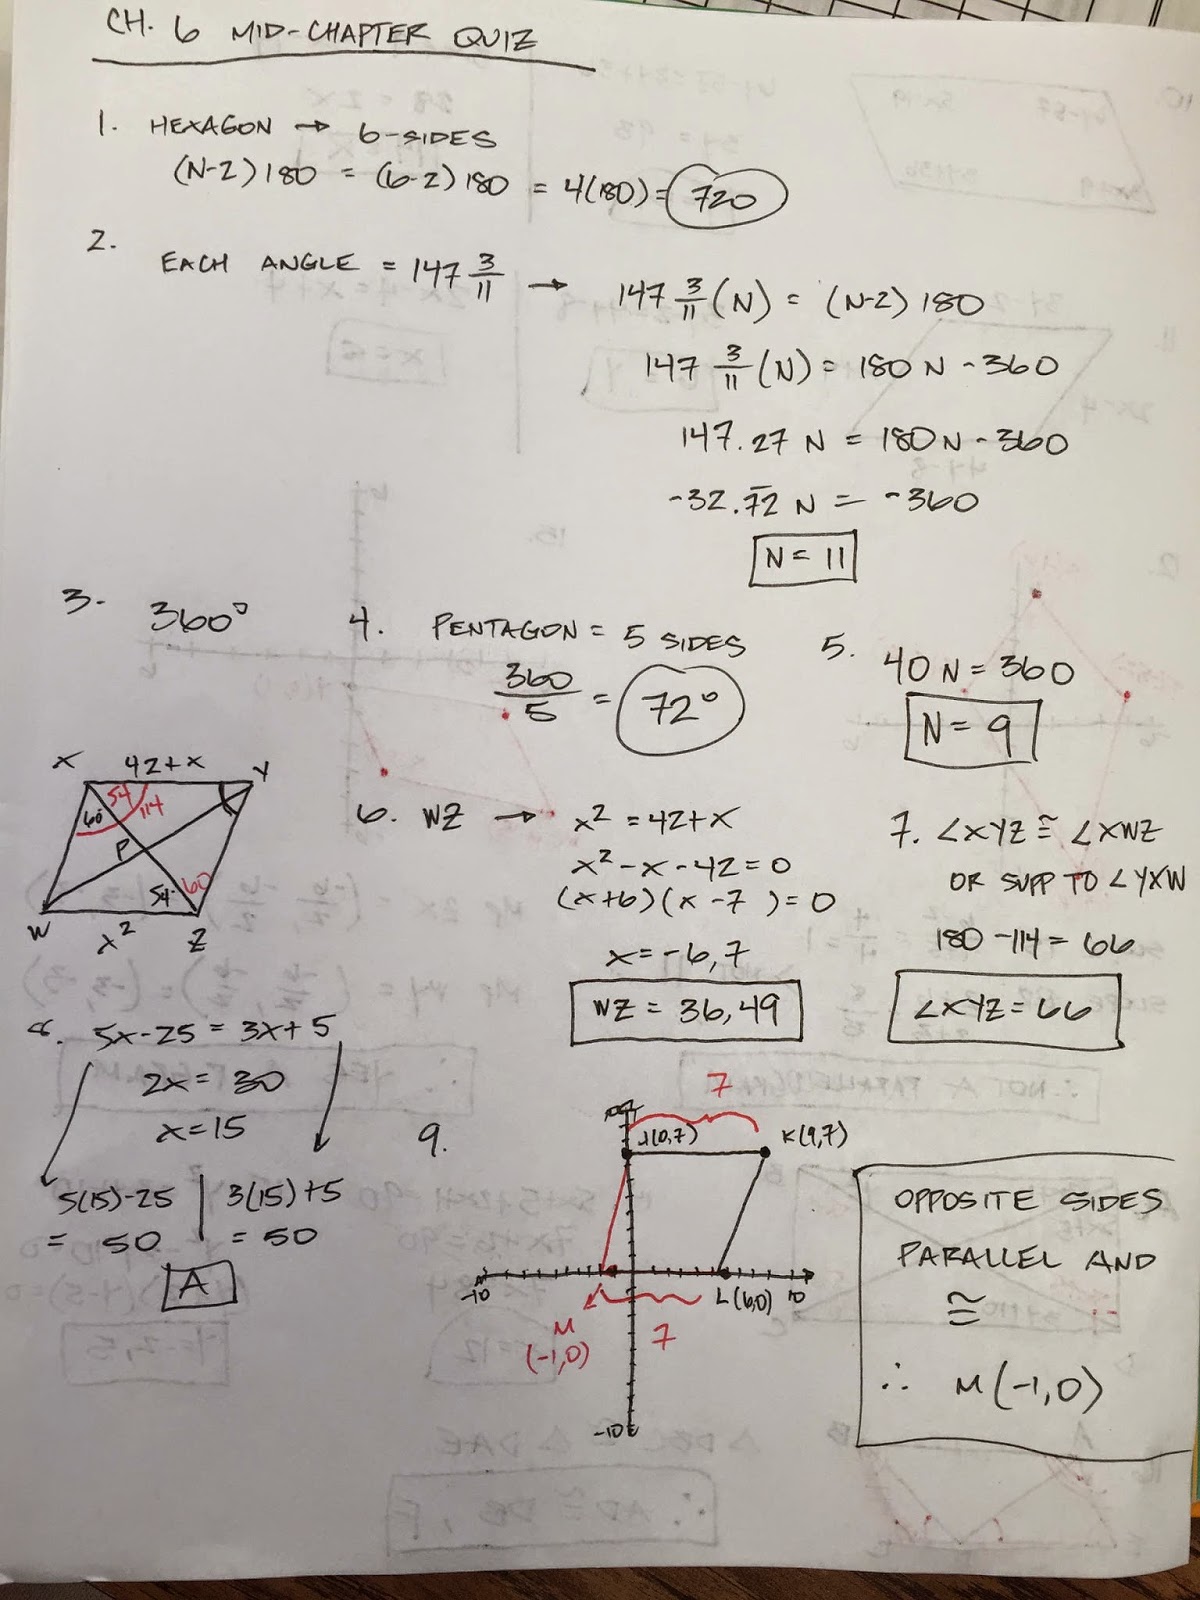 CH. 6 MID-CHAPTER QUIZ
1. HEXAGON → 6-SIDES
(N-2)180 = (6-2)180 = 4(180) = 720
2.
EACH ANGLE = 147 3/11 → 147 3/11 (N) = (N-2) 180
147 3/11 (N) = 180 N - 360
147.27 N = 180N - 360
-32.72 N = -360
N = 11
3. 360°
4. PENTAGON = 5 SIDES
360/5 = 72°
5. 40 N = 360
N = 9
X 42+x Y
54
60 114
P
54 60
W x² Z
6. WZ → x² = 42+x
x² - x - 42 = 0
(x+6)(x-7) = 0
x = -6, 7
WZ = 36, 49
7. ∠XYZ ≅ ∠XWZ
OR SUPP TO ∠YXW
180 - 114 = 66
∠XYZ = 66
8. 5x-25 = 3x+5
2x = 30
x = 15
5(15)-25 | 3(15)+5
= 50 | = 50
A
9.
7
10
J(0,7) K(9,7)
-10 L(6,0) 10
M
(-1,0)
7
-10
OPPOSITE SIDES
PARALLEL AND
≅
∴ M(-1,0)